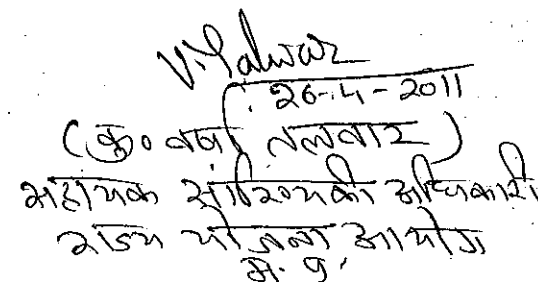 V. Talwar
26-4-2011
(कु० वर्षा तलवार)
सहायक सांख्यिकी अधिकारी
राज्य योजना आयोग
म. प्र.